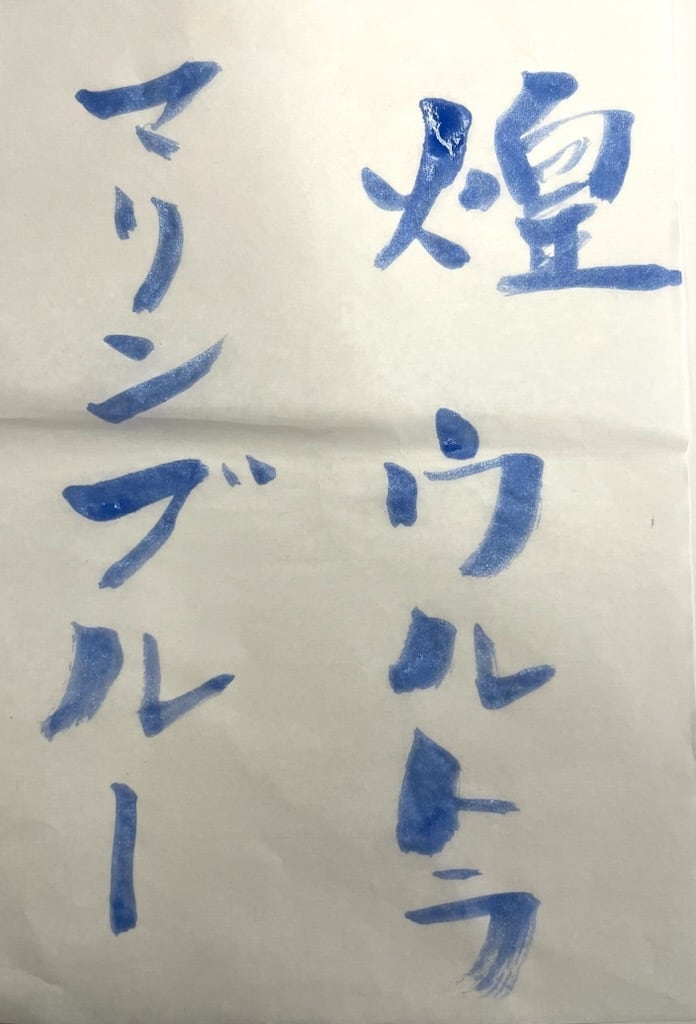 煌 ウルトラ
マリンブルー